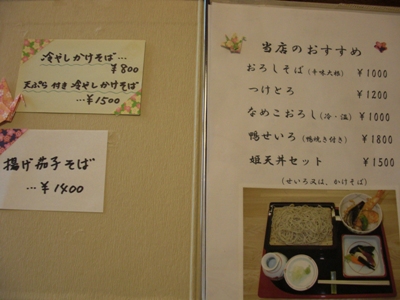 冷やしかけそば…
¥800
天ぷら付き冷やしかけそば
…¥1500
揚げ茄子そば
…¥1400
当店のおすすめ
おろしそば(辛味大根) ¥1000
つけとろ ¥1200
なめこおろし(冷・温) ¥1000
鴨せいろ(鴨焼き付き) ¥1800
姫天丼セット ¥1500
(せいろ又は、かけそば)